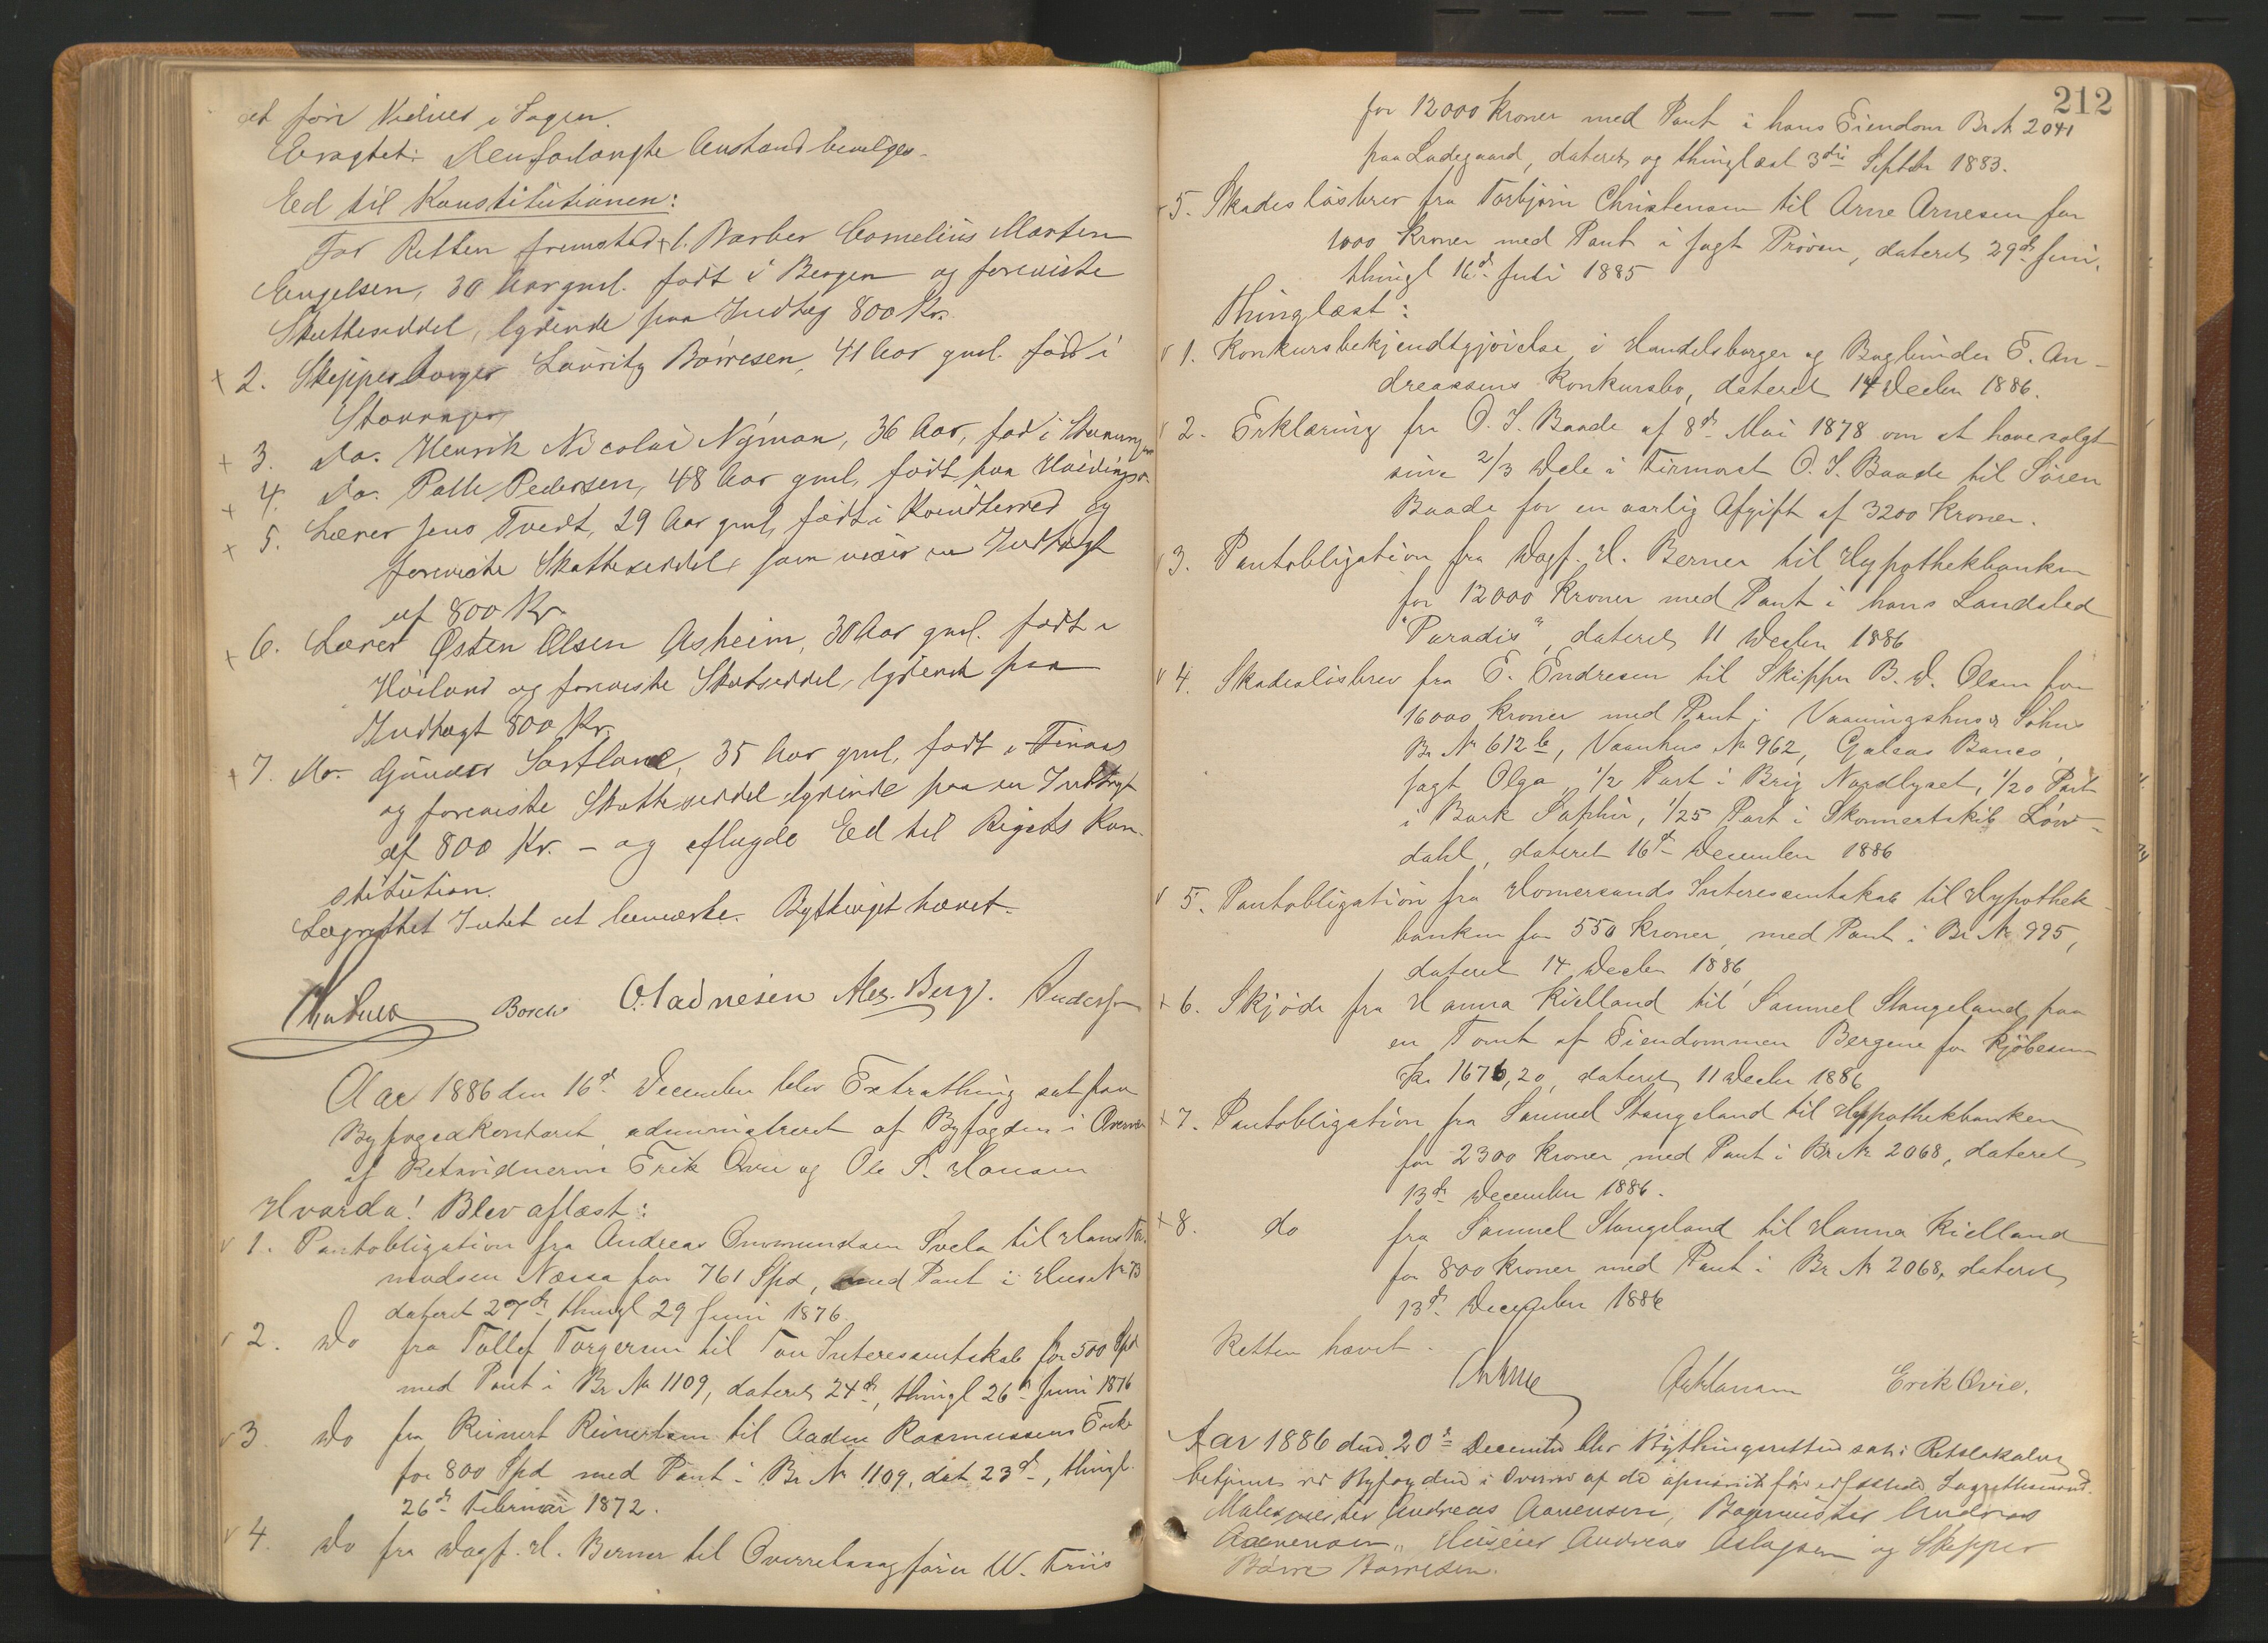 at føre Vidner i Sagen.
Eragtet: Den forlangte Anstand bevilges.
Ed til Konstitutionen:
For Retten fremstod + 1. Barber Cornelius Marten
Engelsen, 30 Aar gml. født i Bergen og foreviste
Skatteseddel, lydende paa Indtæg 800 Kr.
+ 2. Skipperborger Lauritz Börresen, 41 Aar gml. född i
Stavanger
+ 3. Do. Henrik Nicolai Nÿman, 36 Aar, fød i Stavanger
+ 4. Do. Palle Pedersen, 48 Aar gml, født paa Hvidingsø.
+ 5. Lærer Jens Tvedt, 29 Aar gml, født i Kvindherred og
foreviste Skatteseddel, som viser en Indtægt
af 800 Kr
+ 6. Lærer Østen Olsen Asheim, 30 Aar gml. født i
Höiland og foreviste Skatseddel, lydende paa
Indtægt 800 Kr.
+ 7. Do. Gunder Sørflaand, 35 Aar gml, født i Finaas
og foreviste Skatteseddel lydende paa en Indtægt
af 800 Kr. – og aflagde Ed til Rigets Kon-
stitution.
Lagrettet Intet at bemærke. Bythinget hævet.
O. Tadnesen Alex. Berg. Anders
Aar 1886 den 16d December blev Extrathing sat paa
Byfogedkontoret, administreret af Byfogden i Overvær
af Retsvidnerne Erik Qvie og Ole S. Hanson
Hvorda! Blev aflæst:
v 1. Pantobligation fra Andreas Ommundsen Svela til Hans Knu.
mudsen Næssa for 761 Spd, med Pant i Huse No 73
dateret 27de thingl 29 Juni 1876.
v 2. Do fra Tollef Torgersen til Tou Interessentskab for 500 Spd
med Pant i Br No 1109, dateret 24de, thingl 26de Juni 1876
v 3. Do fra Reinert Reinertsen til Aaden Rasmussens Enke
for 800 Spd med Pant i Br No 1109, dat 23de, thingl.
26de Februar 1872.
v 4. Do fra Dagf. H. Berner til Overretssagfører W. Friis
212
for 12000 Kroner med Pant i hans Eiendom Br No 2041
paa Ladegaard, dateret og thinglæst 3die Septbr 1883.
v 5. Skadesløsbrev fra Torbjörn Christensen til Arne Arnesen for
1000 Kroner med Pant i Jagt Pröven, dateret 29de Juni,
thingl 16de Juli 1885
Thinglæst:
v 1. Konkursbekjendtgjörelse i Handelsborger og Bogbinder E. An-
dreassens Konkursbo, dateret 14 Decbr 1886.
v 2. Erklæring fra O. S. Baade af 8de Mai 1878 om at have solgt
sine 2/3 Dele i Firmaet O. S. Baade til Sören
Baade for en aarlig Afgift af 3200 Kroner.
v 3. Pantobligation fra Dagf. H. Berner til Hypothekbanken
for 12000 Kroner med Pant i hans Landsted
"Paradis", dateret 11 Decbr 1886
v 4. Skadeslösbrev fra E. Endresen til Skipper B. D. Olsen for
16000 Kroner med Pant i Vaaningshus & Söhus
Br No 612b, Vaanhus No 962, Galeas Banco,
Jagt Olga, 1/2 Part i Brig Nordlyset, 1/20 Part
i Bark Saphir, 1/25 Part i Skonnertskib Löv-
dahl, dateret 16de December 1886
v 5. Pantobligation fra Homersands Interessentskab til Hypothek-
banken for 550 Kroner, med Pant i Br No 995,
dateret 14 Decbr 1886
+ 6. Skjöde fra Hanna Kielland til Samuel Stangeland paa
en Tomt af Eiendommen Bergene for Kjöbesum
Kr 1676,20, dateret 11 Decbr 1886
+ 7. Pantobligation fra Samuel Stangeland til Hypothekbanken
for 2300 Kroner med Pant i Br No 2068, dateret
13de December 1886.
+ 8. do fra Samuel Stangeland til Hanna Kielland
for 800 Kroner med Pant i Br No 2068, dateret
13de December 1886
Retten hævet.
Erik Qvie.
Aar 1886 den 20de December blev Bythingsretten sat i Retslokalet
betjent ved Byfogden i Overvær af de opnævnte før edfæstede Lagrettesmænd.
Malermester Andreas Aanensen, Bagermester Andreas
Aanensen, Huseier Andreas Aslagsen og Skipper
Börre Börresen.